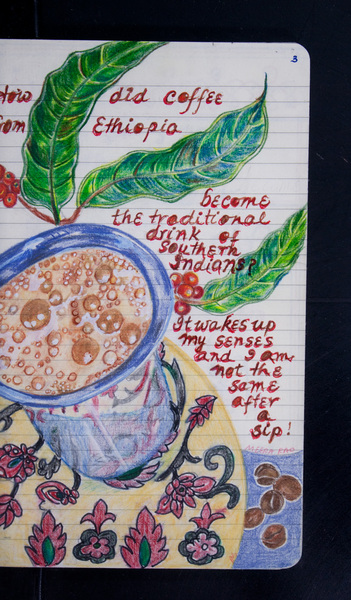 3
How did coffee
from Ethiopia
become
the traditional
drink of
Southern
Indians?
It wakes up
my senses
and I am
not the
same
after
a
sip!